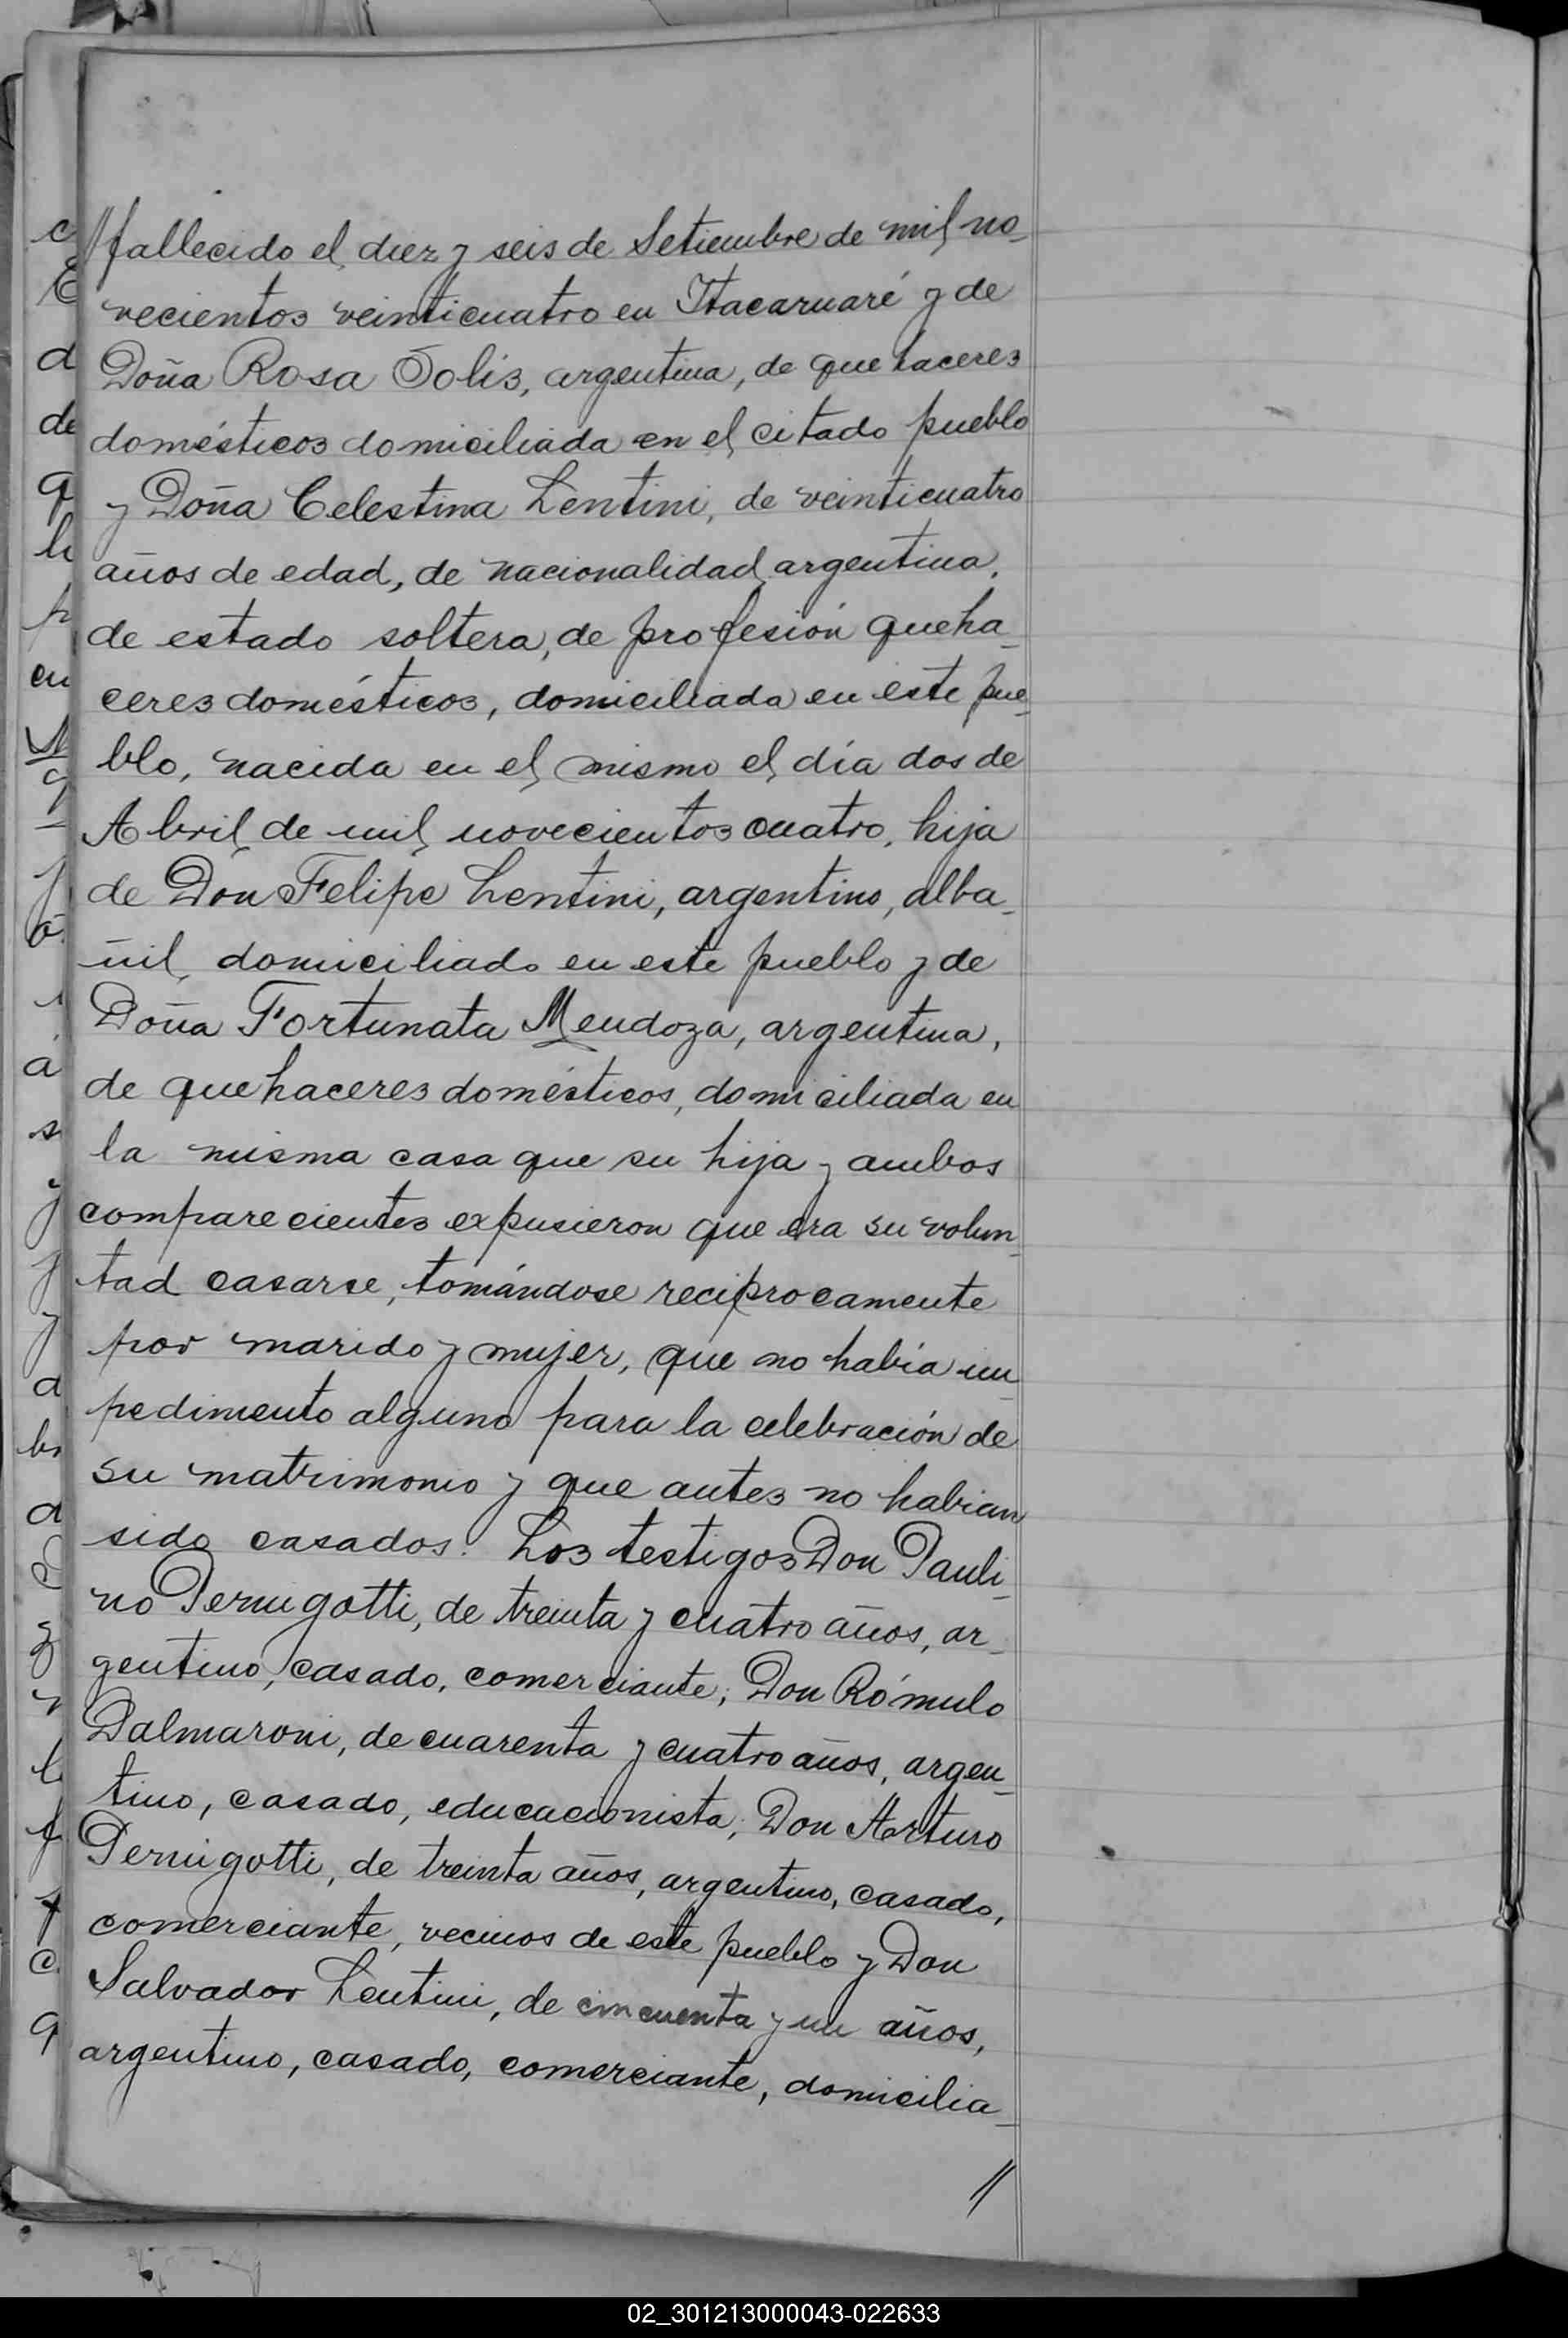 //fallecido el diez y seis de Setiembre de mil no-
vecientos veinticuatro en Itacaruaré y de
Doña Rosa Solis, argentina, de quehaceres
domésticos domiciliada en el citado pueblo
y Doña Celestina Lentini, de veinticuatro
años de edad, de nacionalidad argentina,
de estado soltera, de profesión queha-
ceres domésticos, domiciliada en este pue-
blo, nacida en el mismo el día dos de
Abril de mil novecientos cuatro, hija
de Don Felipe Lentini, argentino, alba-
ñil, domiciliado en este pueblo y de
Doña Fortunata Mendoza, argentina,
de quehaceres domésticos, domiciliada en
la misma casa que su hija y ambos
comparecientes expusieron que era su volun-
tad casarse, tomándose reciprocamente
por marido y mujer, que no había im-
pedimento alguno para la celebración de
su matrimonio y que antes no habian
sido casados. Los testigos Don Pauli-
no Pernigotti, de treinta y cuatro años, ar-
gentino, casado, comerciante; Don Rómulo
Dalmaroni, de cuarenta y cuatro años, argen-
tino, casado, educacionista; Don Arturo
Pernigotti, de treinta años, argentino, casado,
comerciante, vecinos de este pueblo y Don
Salvador Lentini, de cincuenta y un años,
argentino, casado, comerciante, domicilia-
//
02_301213000043-022633